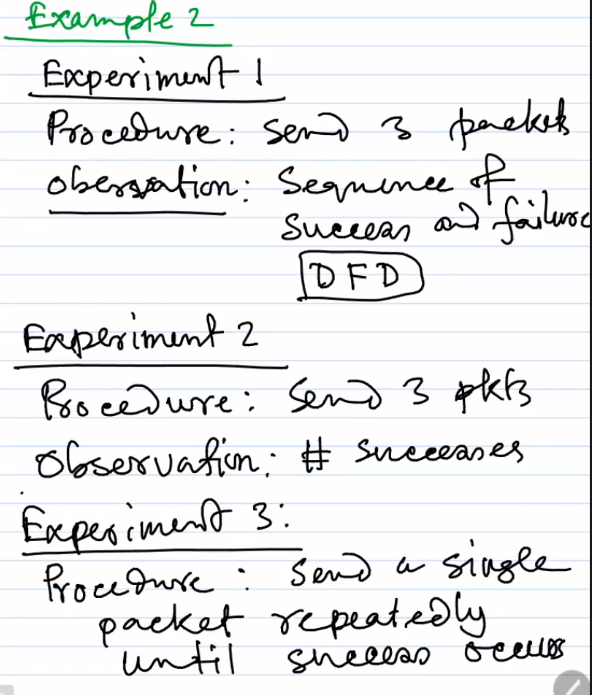 Example 2
Experiment 1
Procedure: Send 3 packets
Obersvation: Sequence of
success and failure
DFD
Experiment 2
Procedure: Send 3 pkts
Observation: # successes
Experiment 3:
Procedure: Send a single
packet repeatedly
until success occurs